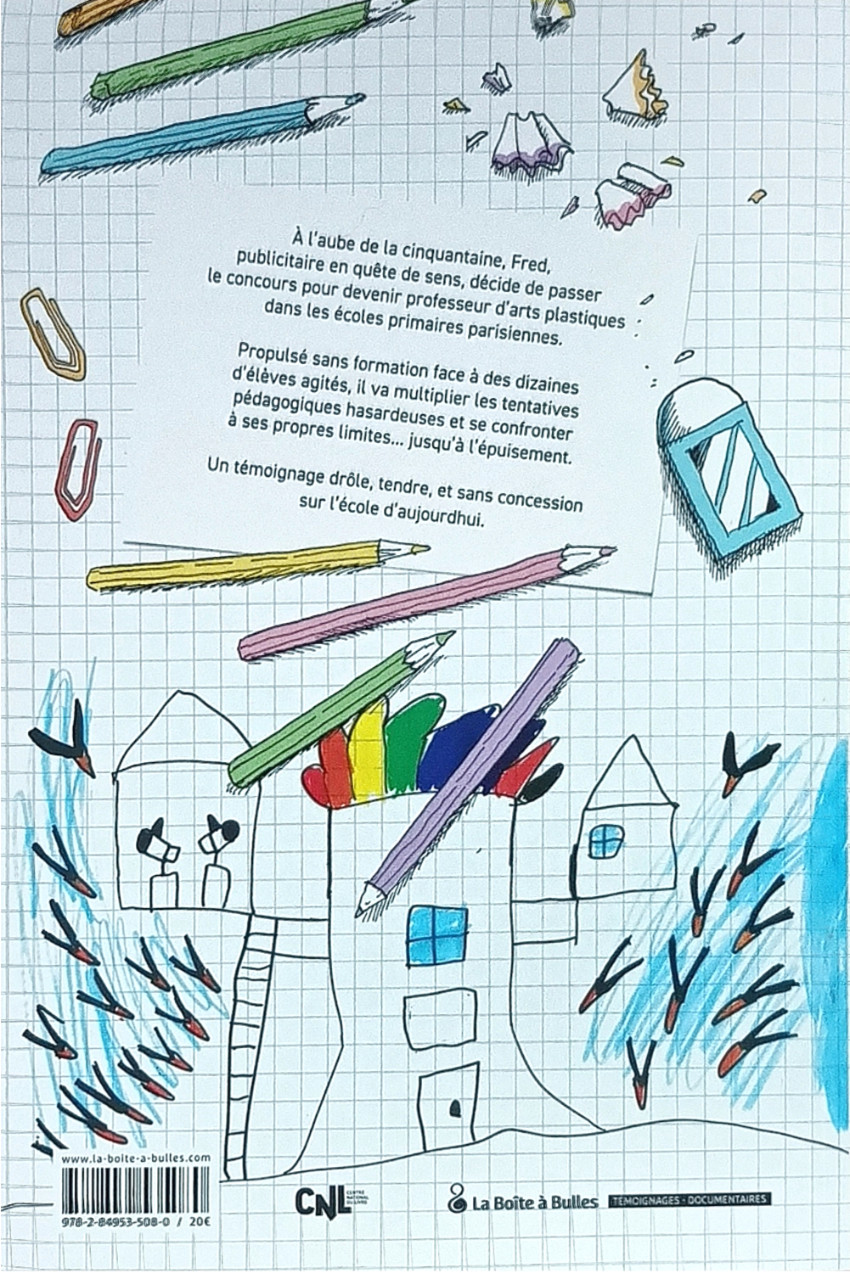 À l'aube de la cinquantaine, Fred,
publicitaire en quête de sens, décide de passer
le concours pour devenir professeur d'arts plastiques
dans les écoles primaires parisiennes.
Propulsé sans formation face à des dizaines
d'élèves agités, il va multiplier les tentatives
pédagogiques hasardeuses et se confronter
à ses propres limites... jusqu'à l'épuisement.
Un témoignage drôle, tendre, et sans concession
sur l'école d'aujourd'hui.
www.la-boite-a-bulles.com
978-2-84953-508-0 / 20€
CNL CENTRE
NATIONAL
DU LIVRE
La Boîte à Bulles TÉMOIGNAGES - DOCUMENTAIRES